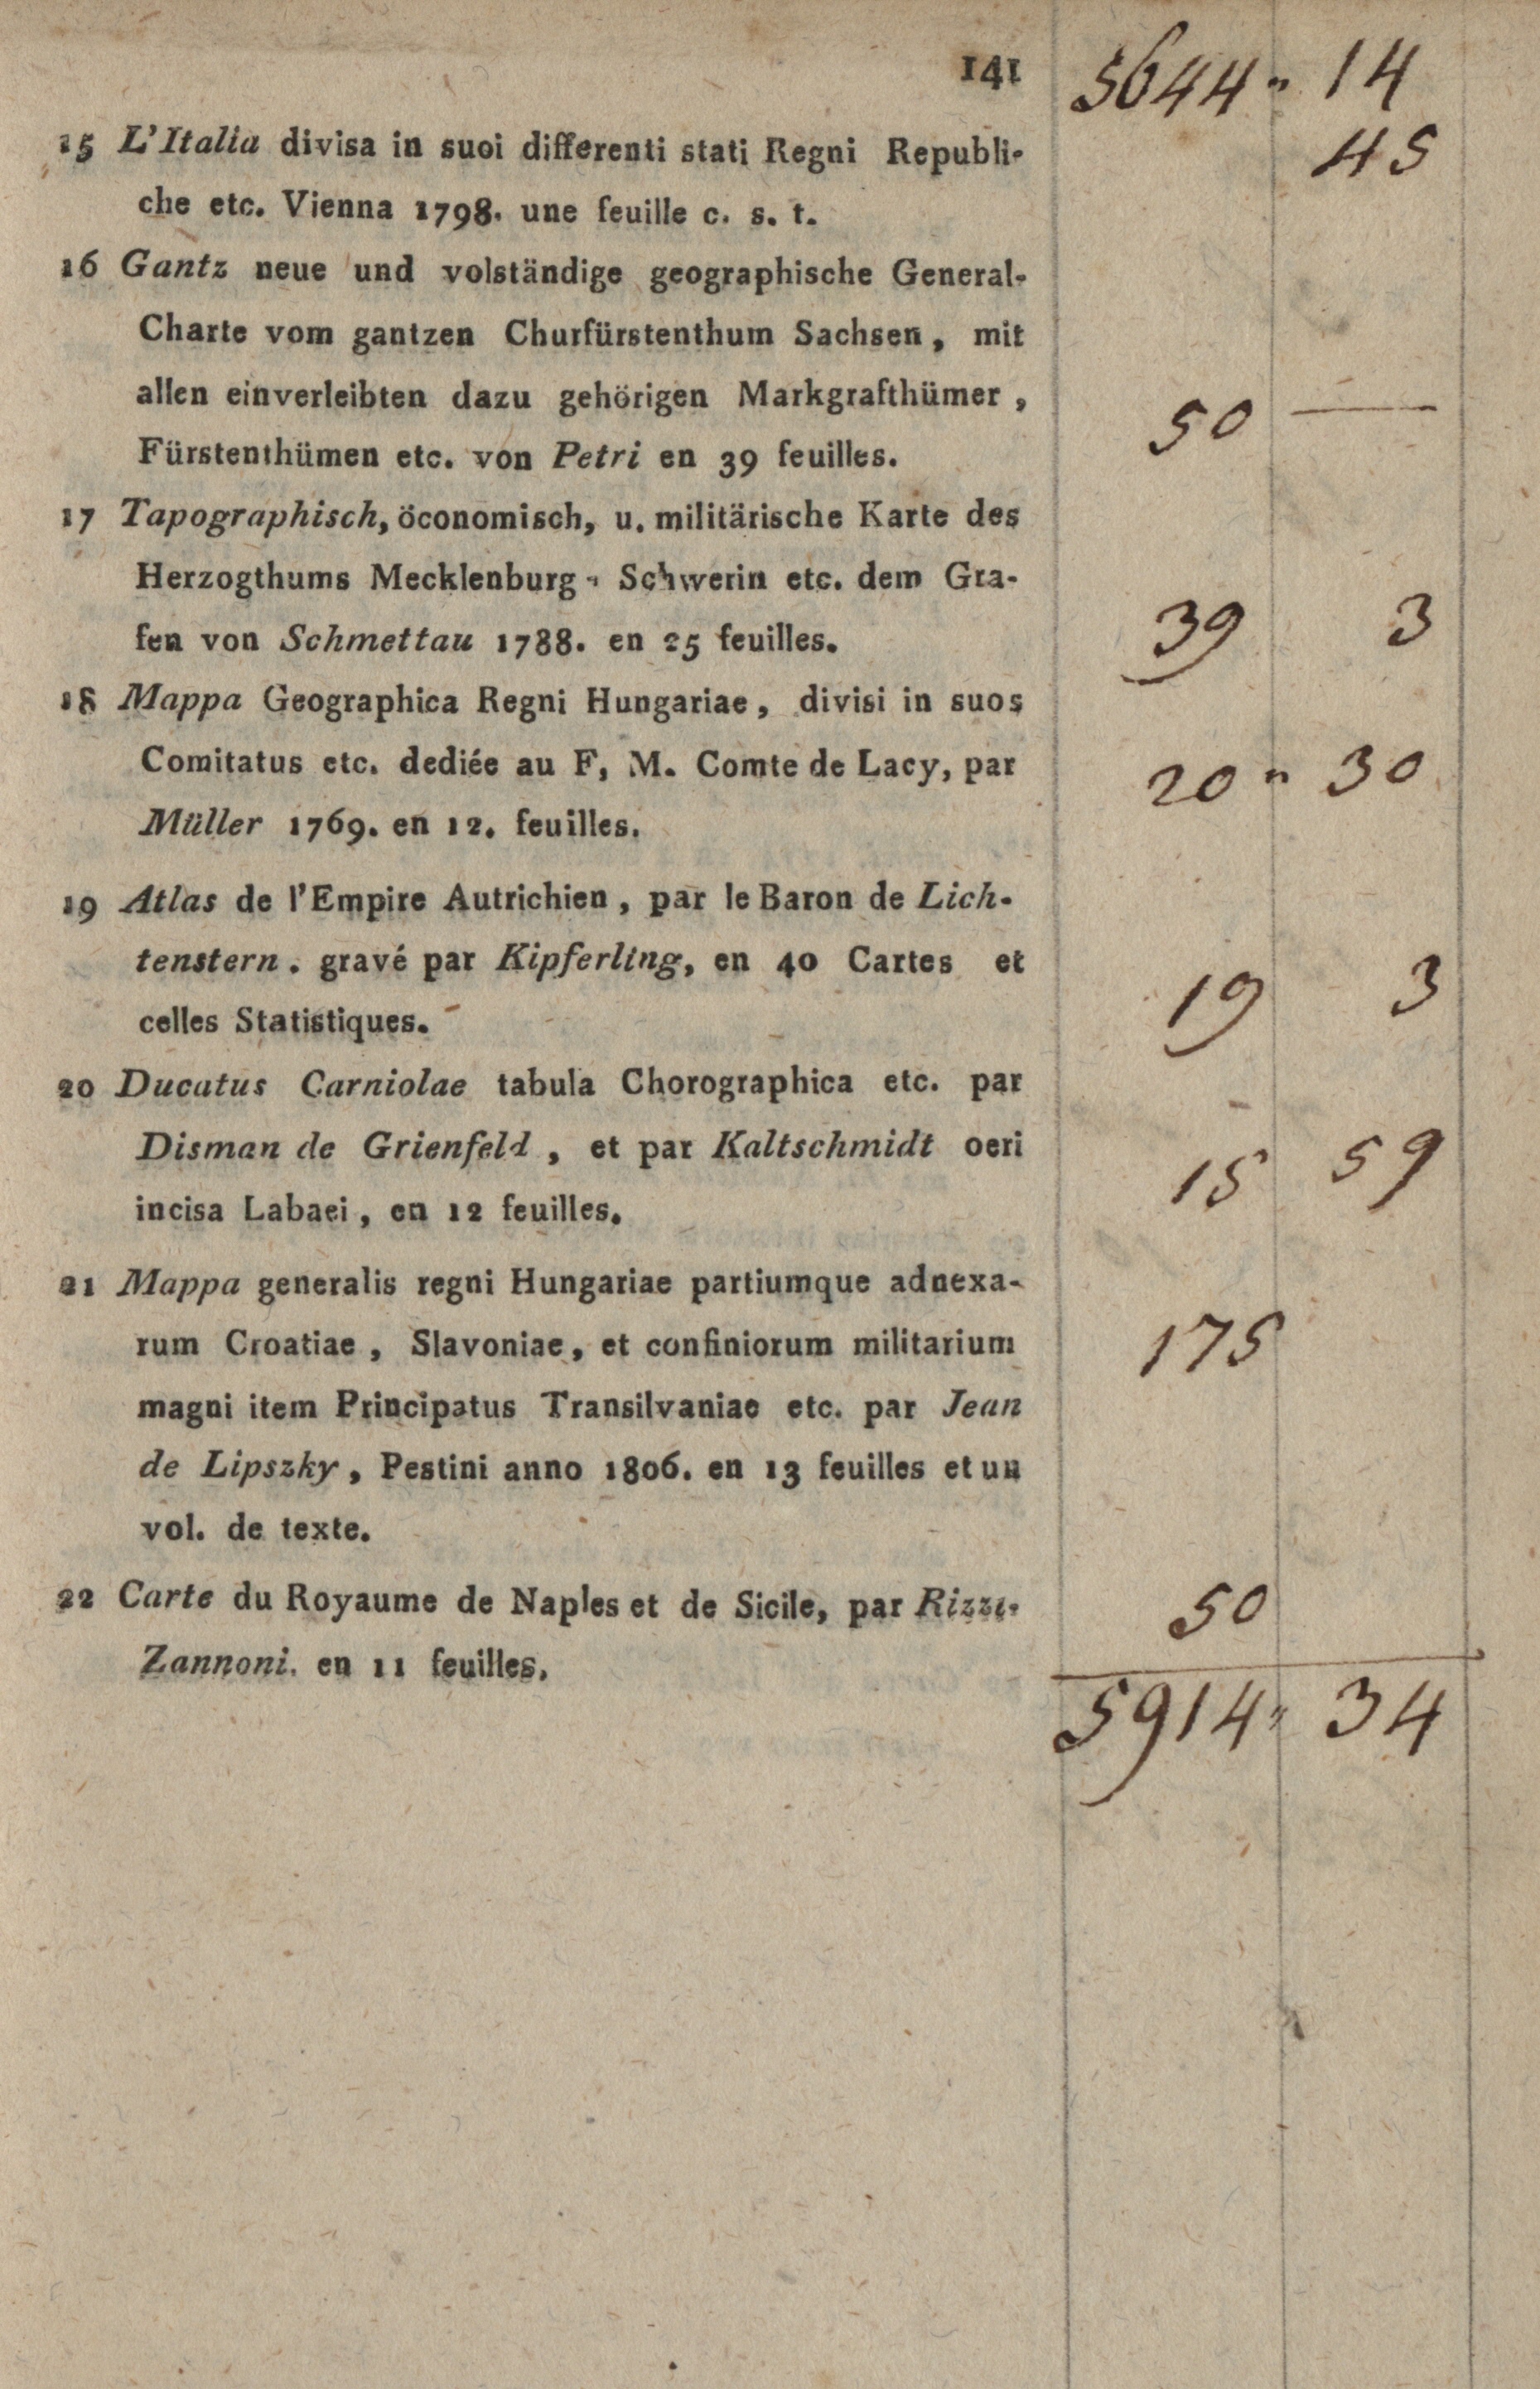 141 5644 " 14
15 L'Italia divisa in suoi differenti stati Regni Republi- 45
che etc. Vienna 1798. une feuille c. s. t.
16 Gantz neue und volständige geographische General-
Charte vom gantzen Churfürstenthum Sachsen, mit
allen einverleibten dazu gehörigen Markgrafthümer, 50 —
Fürstenthümen etc. von Petri en 39 feuilles.
17 Tapographisch, öconomisch, u. militärische Karte des
Herzogthums Mecklenburg-Schwerin etc. dem Gra-
fen von Schmettau 1788. en 25 feuilles. 39 3
18 Mappa Geographica Regni Hungariae, divisi in suos
Comitatus etc. dediée au F, M. Comte de Lacy, par 20 " 30
Müller 1769. en 12. feuilles.
19 Atlas de l'Empire Autrichien, par le Baron de Lich-
tenstern. gravé par Kipferling, en 40 Cartes et
celles Statistiques. 19 3
20 Ducatus Carniolae tabula Chorographica etc. par
Disman de Grienfeld, et par Kaltschmidt oeri 15 59
incisa Labaei, en 12 feuilles.
21 Mappa generalis regni Hungariae partiumque adnexa-
rum Croatiae, Slavoniae, et confiniorum militarium 175
magni item Principatus Transilvaniae etc. par Jean
de Lipszky, Pestini anno 1806. en 13 feuilles et un
vol. de texte.
22 Carte du Royaume de Naples et de Sicile, par Rizzi- 50
Zannoni. en 11 feuilles.
5914 " 34